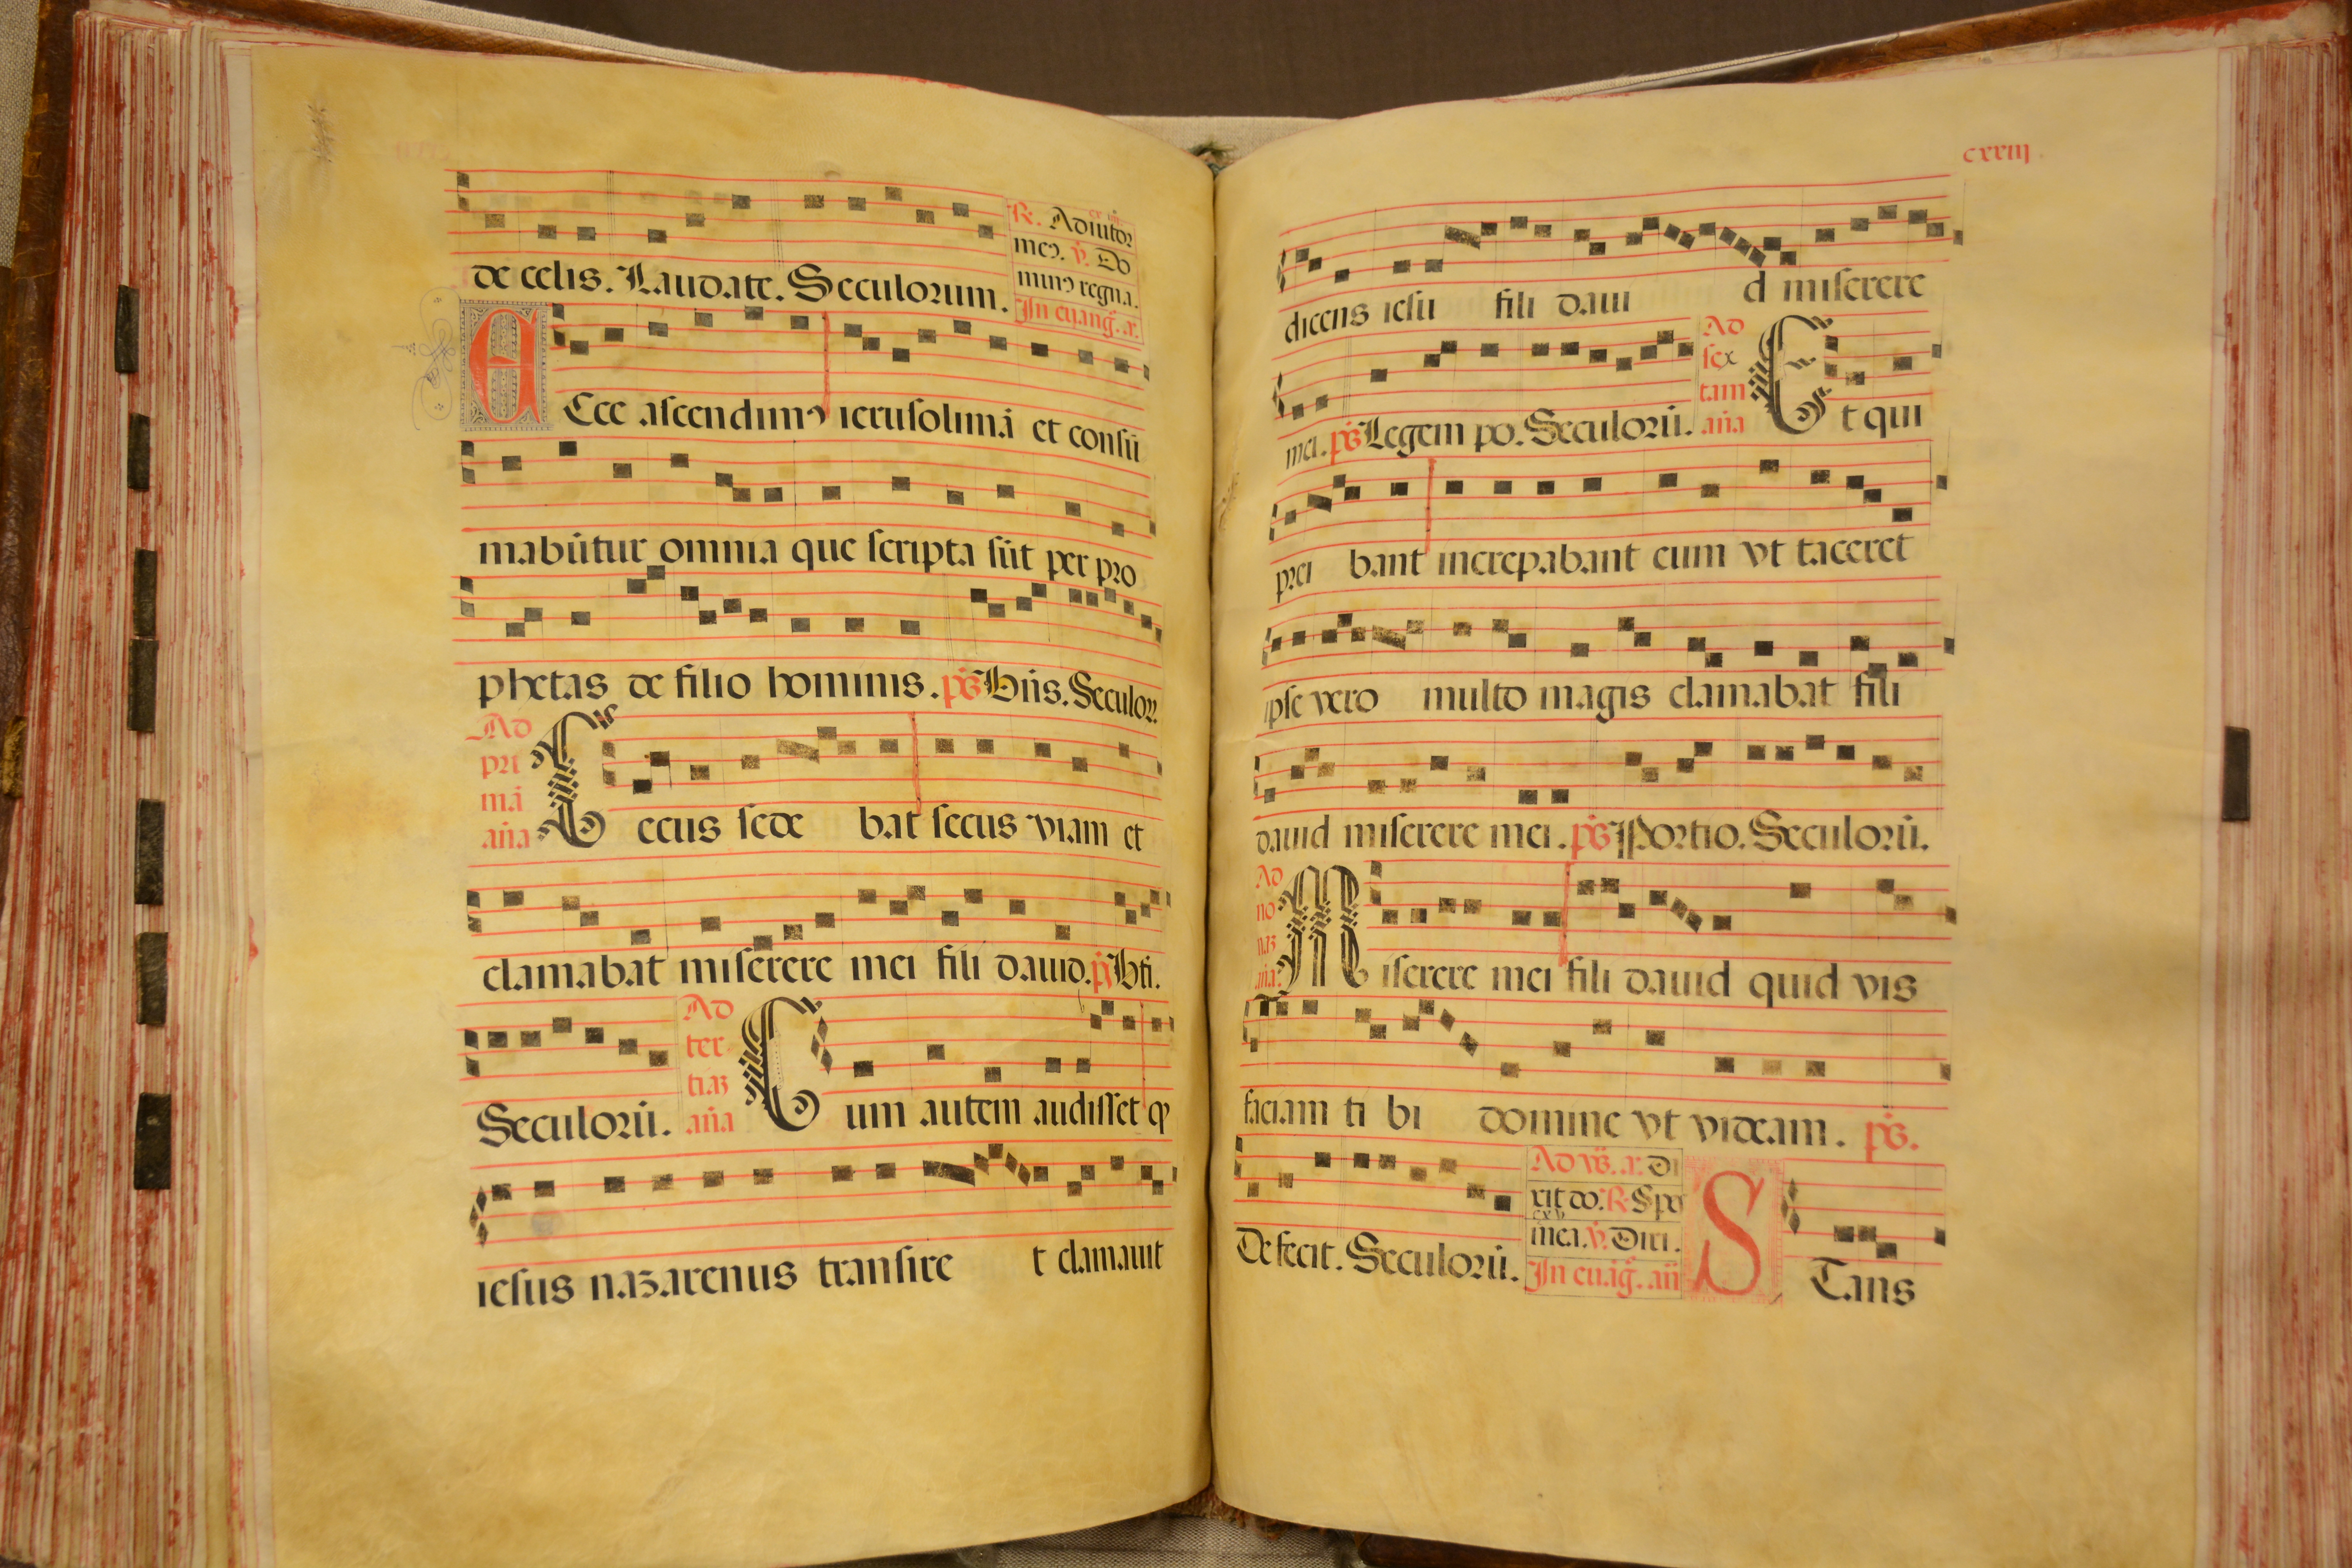 de celis. Laudate. Seculorum.
R. Adiutor
meꝰ. v. Do
minꝰ regna.
In euang̃. a.
E Cce ascendimꝰ ierusolimā et consū
mabūtur omnia que scripta sūt per pro
phetas de filio hominis. ps̃ Bn̄s. Seculor.
Ad
pri
mā
an̄a
C ecus sede bat secus viam et
clamabat miserere mei fili dauid. ps̃ Bti.
Seculorū.
Ad
ter
tiaʒ
an̄a
C um autem audisset qꝫ
iesus naʒarenus transire t clamauit
cxxiij.
dicens iesu fili daui d miserere
mei. ps̃ Legem po. Seculorū.
Ad
sex
tam
an̄a
E t qui
prei bant increpabant eum vt taceret
ipse vero multo magis clamabat fili
dauid miserere mei. ps̃ Portio. Seculorū.
Ad
no
naʒ
an̄a.
M iserere mei fili dauid quid vis
faciam ti bi domine vt videam. ps̃.
Defecit. Seculorū.
Ad vs̃. a. Di
xit do. R. Spe
cxv
mea. v. Diri.
In euāg̃. an̄
S Tans